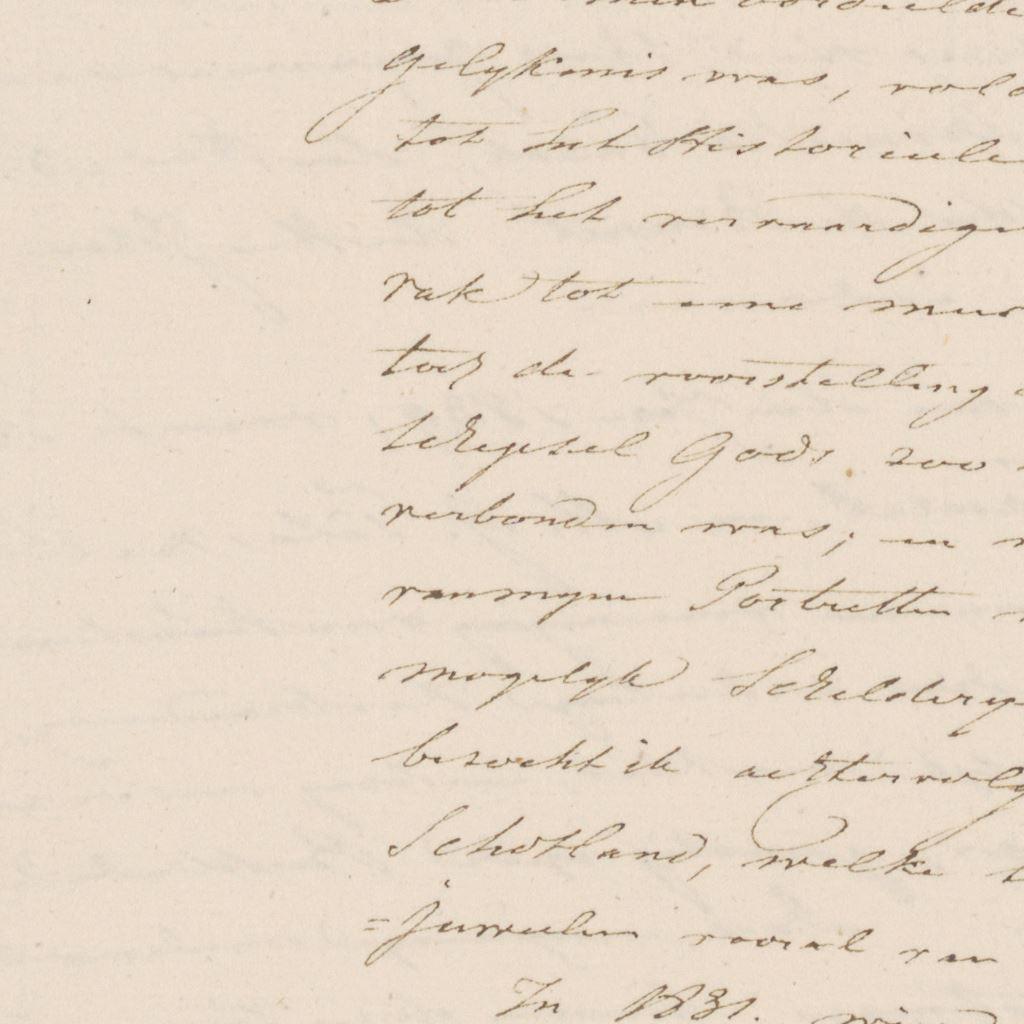 gelykenis was, vol
tot het Historieele
tot het vervaardige
vak tot eene
toch de voorstelling
schepsel Gods zoo
verbonden was; en
van myne Portretten
mogelyk Schildery
bezocht ik achtervolg
Schotland, welke
=juweelen vooral van
In 1831.